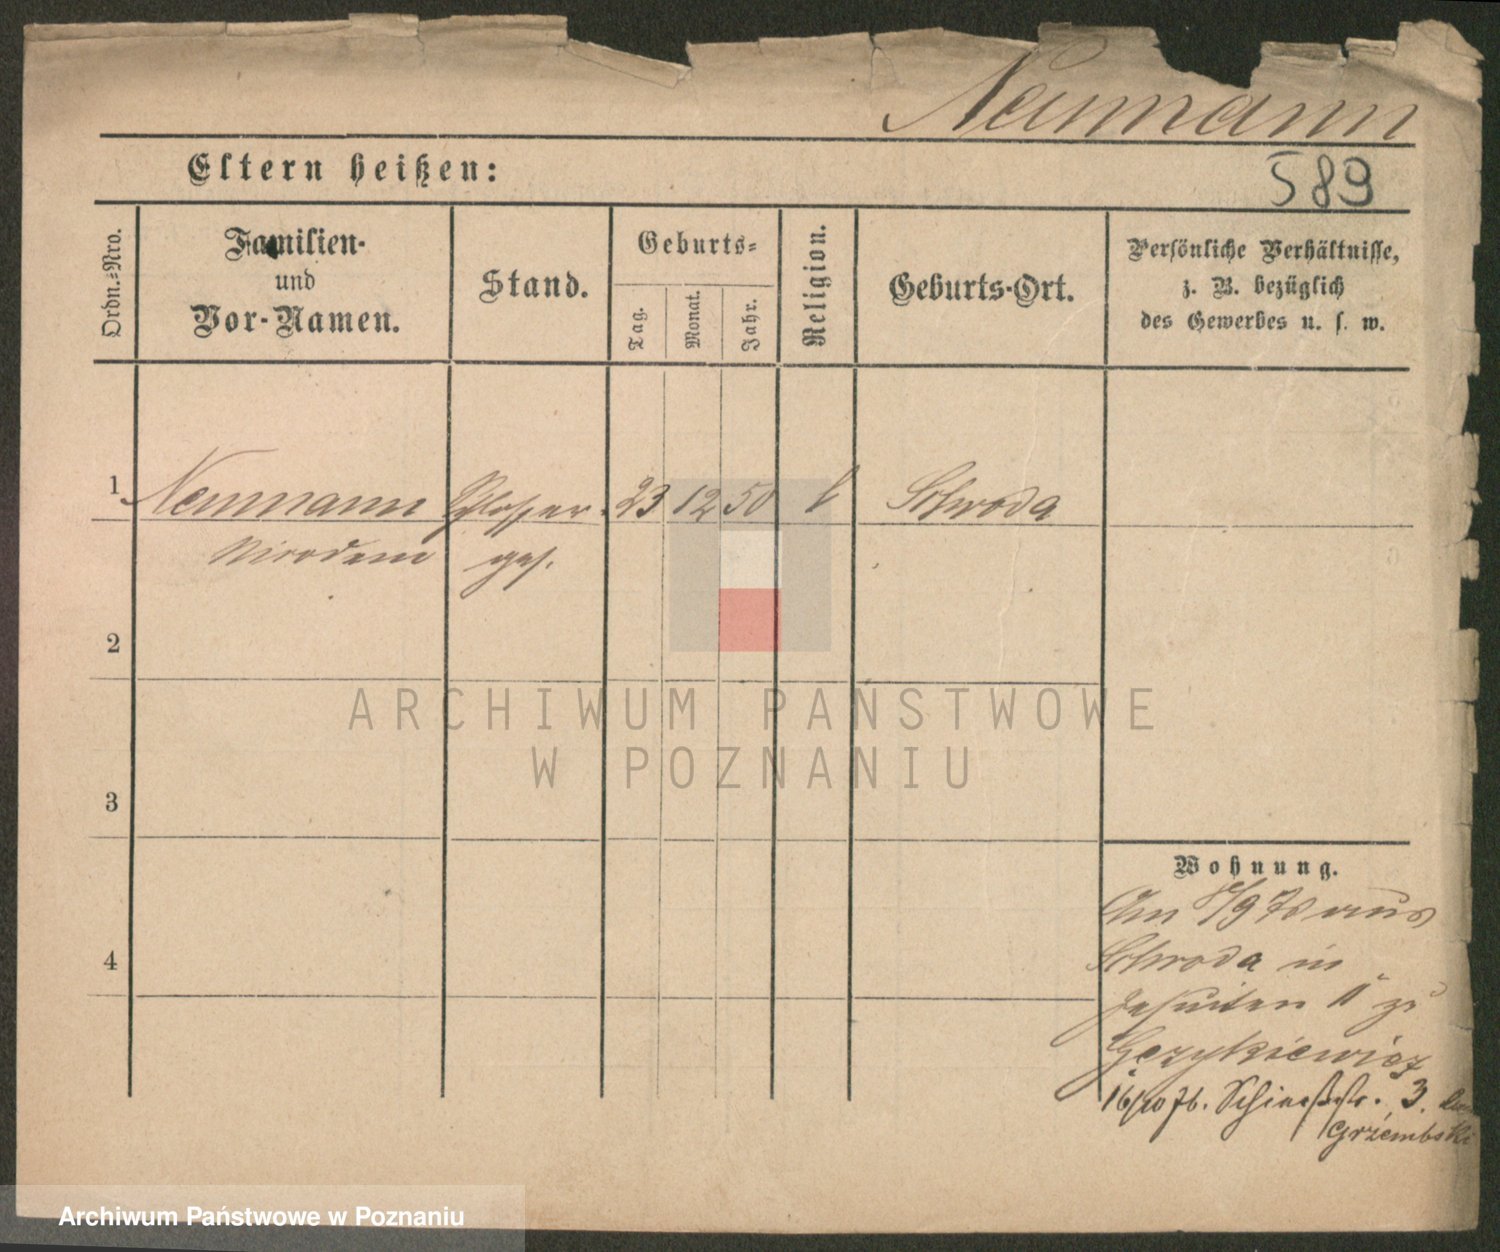 Neumann
Eltern heißen:
589
Ordn.-Nro.
Familien-
und
Vor-Namen.
Stand.
Geburts-
Tag.
Monat.
Jahr.
Religion.
Geburts-Ort.
Persönliche Verhältnisse,
z. B. bezüglich
des Gewerbes u. s. w.
1 Neumann Schlosser 23 12 50 Schroda
ges.
2
3
4
Wohnung.
Am aus
Schroda in
Jesuiten 11 zu
16/10 76. Schiesstr. 3.
Grzembski
ARCHIWUM PAŃSTWOWE
W POZNANIU
Archiwum Państwowe w Poznaniu